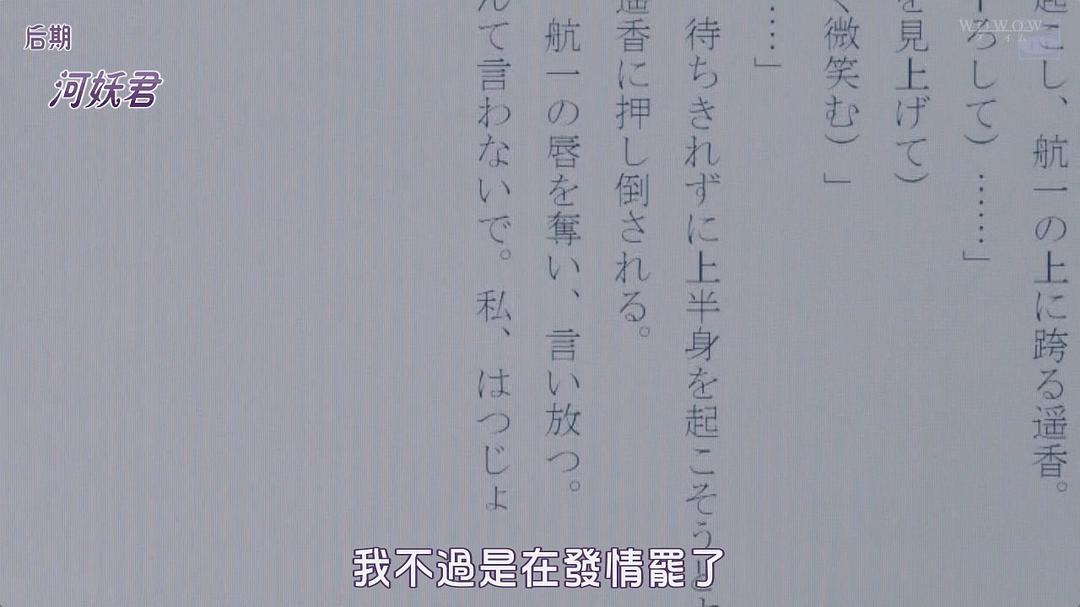 后期
河妖君
WOWOW
起こし、航一の上に跨る遥香。
ろして）……」
を見上げて）
く微笑む）」
……」
待ちきれずに上半身を起こそうと
遥香に押し倒される。
航一の唇を奪い、言い放つ。
んて言わないで。私、はつじょ
我不過是在發情罷了